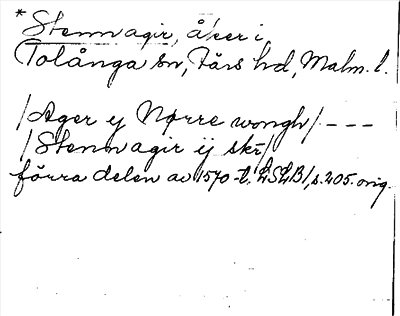 *Stennagir, åker i
Tolånga sn, Färs hd, Malm. l.
/Ager ij Nørre wongh/ ---
/Stennagir ij skr/
förra delen av 1570-t. LSLB/, s. 205. orig.